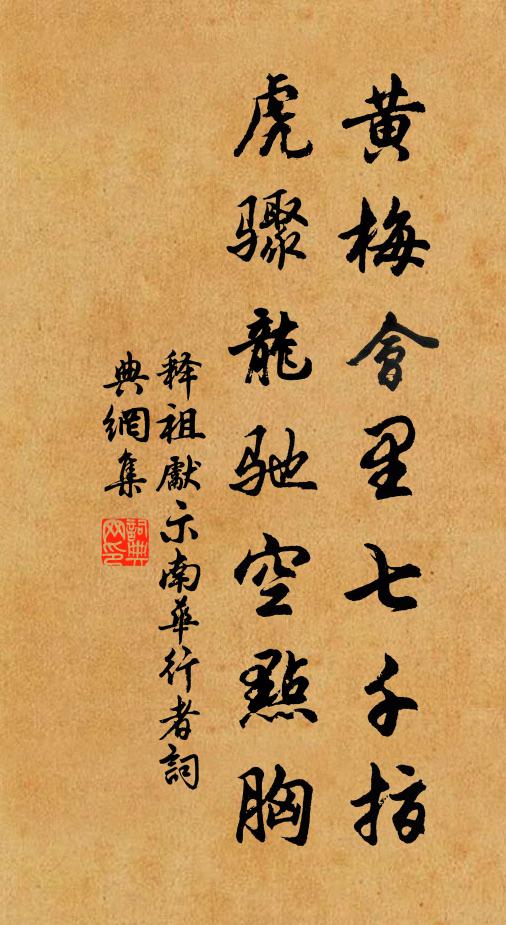 黄梅會里七千指
虎驟龍馳空點胸
释祖獻示南華行者詞
典網集
詞典網印